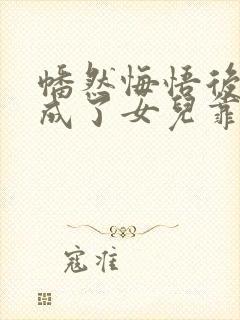 幡然悔悟後
成了女兒靠
寇准